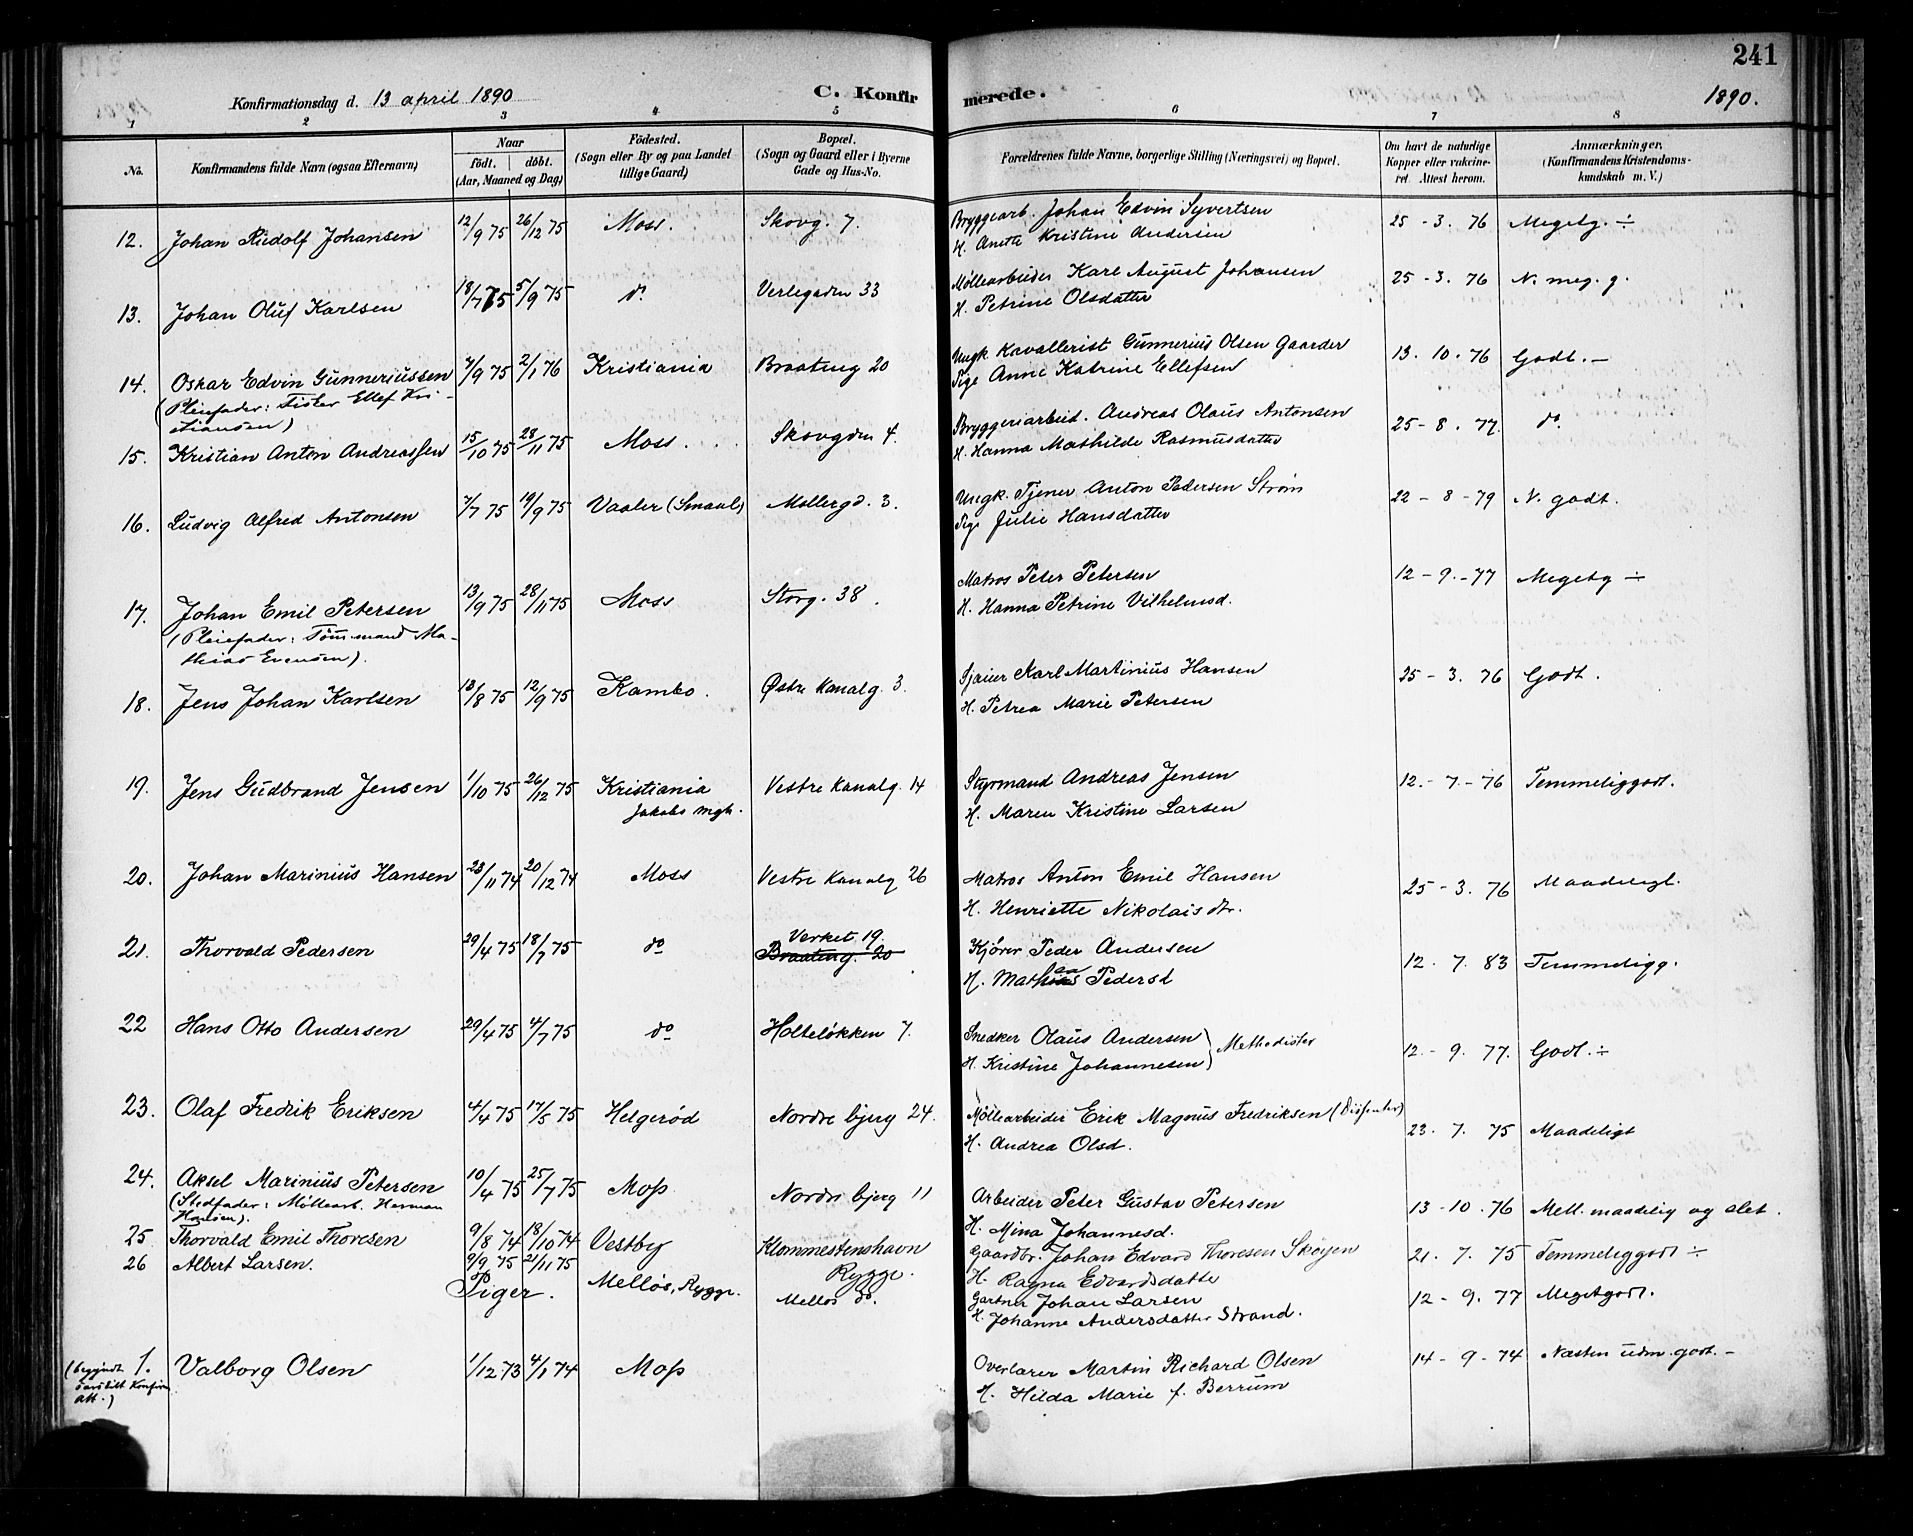 241
Konfirmationsdag d. 13 april 1890 C. Konfirmerede. 1890.
1 2 3 4 5 6 7 8
No. Konfirmandens fulde Navn (ogsaa Efternavn) Naar födt. döbt. (Aar, Maaned og Dag) Födested. (Sogn eller By og paa Landet tillige Gaard) Bopæl. (Sogn og Gaard eller i Byerne Gade og Hus-No. Forældrenes fulde Navne, borgerlige Stilling (Næringsvei) og Bopæl. Om havt de naturlige Kopper eller vakcineret. Attest herom. Anmærkninger. (Konfirmandens Kristendomskundskab m. V.)
12. Johan Rudolf Johansen 12/9 75 26/12 75 Moss. Skovg. 7. Bryggearb. Johan Edvin Syvertsen 25 - 3. 76 Megetg. ÷
H. Anette Kristine Andersen
13. Johan Oluf Karlsen 18/7 75 5/9 75 do Verlegaden 33 Møllearbeider Karl August Johansen 25 - 3. 76 N. meg. g.
H. Petrine Olsdatter
14. Oskar Edvin Gunneriussen 7/9 75 2/1 76 Kristiania Braateng 20 Ungk. Kavallerist Gunnerius Olsen Gaarder 13. 10. 76 Godt. -
(Pleiefader: Fisker Ellef Kri- Pige Anne Katrine Ellefsen
stiansen)
15. Kristian Anton Andreassen 15/10 75 28/11 75 Moss. Skovgden 4. Bryggeriarbeid. Andreas Olaus Antonsen 25 - 8. 77. do
H. Hanna Mathilde Rasmusdatter
16. Ludvig Alfred Antonsen 7/7 75 19/9 75 Vaaler (Smaal) Møllergd. 3. Ungk. Tjener Anton Pedersen Strøm 22 - 8 - 79 N. godt.
Pige Julie Hansdatter
17. Johan Emil Petersen 13/9 75 28/11 75 Moss Storg. 38. Matros Peter Petersen 12 - 9. - 77 Megetg ÷
(Pleiefader: Tømmermand Ma- H. Hanna Petrine Vilhelmsd.
thias Evensen).
18. Jens Johan Karlsen 13/8 75 12/9 75 Kambo. Østre Kanalg. 3. Sjauer Karl Martinius Hansen 25 - 3. 76 Godt.
H. Petrea Marie Petersen
19. Jens Gudbrand Jensen 1/10 75 26/12 75 Kristiania Vestre Kanalg. 14 Styrmand Andreas Jensen 12. - 7. - 76 Temmeliggodt.
Jakobs mgh. H. Maren Kristine Larsen
20. Johan Marinius Hansen 23/11 74 20/12 74 Moss Vestre Kanalg 26 Matros Anton Emil Hansen 25 - 3. 76 Maadeligt.
H. Henriette Nikolaisdtr.
21. Thorvald Pedersen 29/4 75 18/7 75 do Verket 19. Kjører Peder Andersen 12. 7. 83 Temmeligg.
Braateng. 20 H. Mathea Pedersd
22 Hans Otto Andersen 29/4 75 4/7 75 do Holteløkken 7. Snedker Olaus Andersen } Methodister 12. - 9. 77. Godt. ÷
H. Kristine Johannesen
23. Olaf Fredrik Eriksen 4/4 75 17/5 75 Helgerød Nordre bjerg 24. Møllearbeider Erik Magnus Fredriksen (Dissenter) 23. 7. 75 Maadeligt
H. Andrea Olsd.
24. Aksel Marinius Petersen 10/4 75 25/7 75 Moss Nordre bjerg 11 Arbeider Peter Gustav Petersen 13 - 10. 76 Mell. maadelig og slet.
(Stedfader: Møllearb. Herman H. Mina Johannesd.
Hansen).
25 Thorvald Emil Thoresen 9/8 74 18/10 74 Vestby Klommestenshavn Gaardbr. Johan Edvard Thoresen Skøyen 21. 7. 75 Temmeliggodt ÷
Rygge. H. Ragna Edvardsdatter
26 Albert Larsen. 9/9 75 21/11 75 Melløs, Rygge. Melløs do. Gartner Johan Larsen 12 - 9. 77 Megetgodt.
H. Johanne Andersdatter Strand.
Piger.
1. Valborg Olsen 1/12 73 4/1 74 Moss Overlærer Martin Richard Olsen 14 - 9 - 74 Næsten udm. godt. -
(begyndt H. Hilda Marie f. Berrum
særskilt Konfirm
att.)